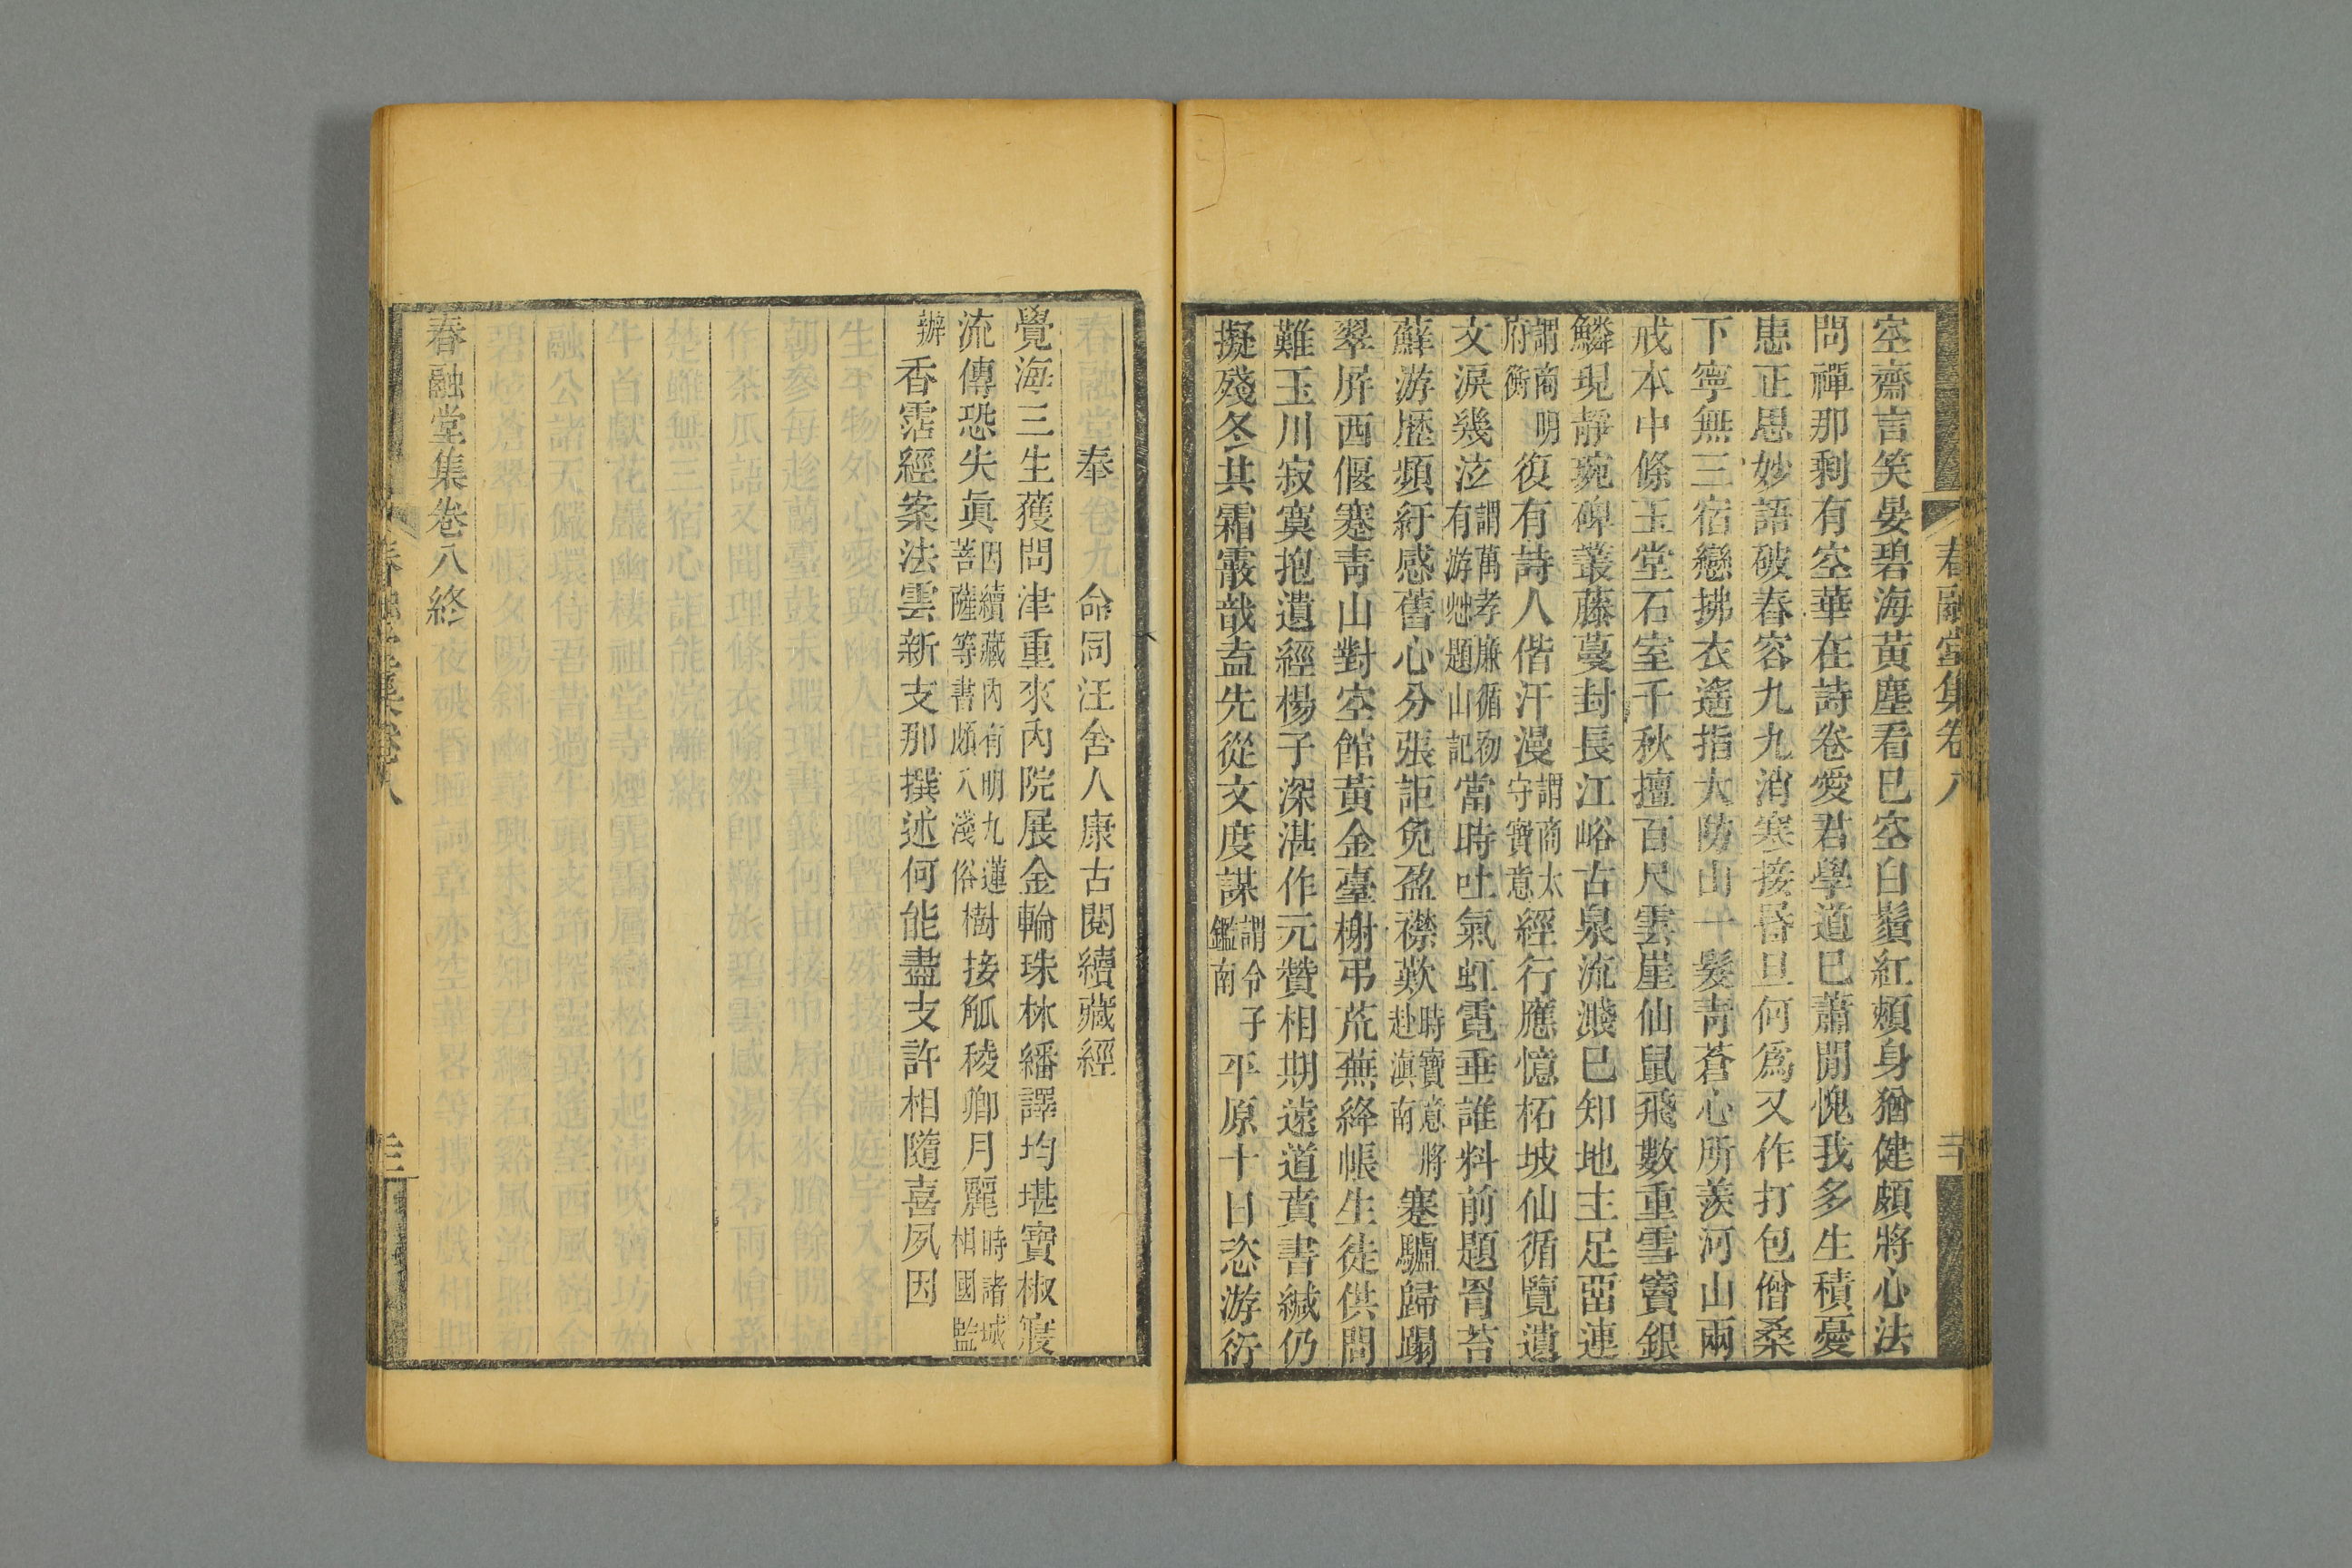 空齋言笑晏碧海黃塵看已空白鬚紅頰身猶健頗將心法
問禪那剩有空華在詩卷愛君學道已蕭閒愧我多生積憂
患正思妙語破春容九九消寒接昏旦何爲又作打包僧桑
下寧無三宿戀拂衣遙指太防山一髮靑蒼心所羨河山兩
戒本中條玉堂石室千秋擅百尺雲崖仙鼠飛數重雪竇銀
鱗現靜琬碑叢藤蔓封長江峪古泉流濺已知地主足臿連
謂商明府衡復有詩人偕汗漫謂商太守寶意經行應憶柘坡仙循覽遺
文淚幾泣謂萬孝廉循初有游虵題山記當時吐氣虹霓垂誰料前題罥苔
蘚游歷頻紆感舊心分張詎免盈襟歎時寶意將赴滇南蹇驢歸蹋
翠屏西偃蹇靑山對空館黃金臺榭弔荒蕪絳帳生徒供問
難玉川寂寞抱遺經楊子深湛作元贊相期遠道賁書緘仍
擬殘冬共霜霰哉盍先從文度謀謂令子鑑南平原十日恣游衍
春融堂集卷八
奉命同汪舍人康古閱續藏經
覺海三生獲問津重來內院展金輪珠林繙譯均堪寶椒寢
流傳恐失眞因續藏內有明九蓮菩薩等書頗入淺俗樹接觚稜卿月麗時諸城相國監
辦香霑經案法雲新支那撰述何能盡支許相隨喜夙因
春融堂集卷八終
春融堂集卷八